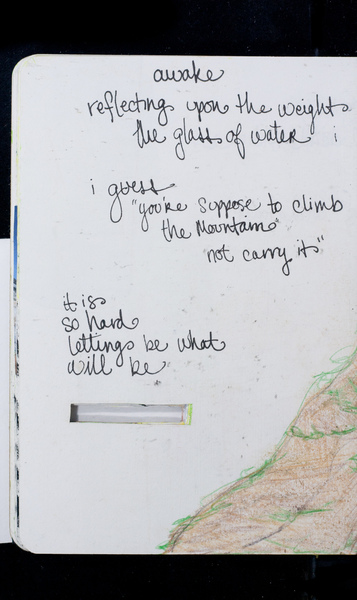 awake
reflecting upon the weight
the glass of water i
i guess
"you're suppose to climb
the Mountain
not carry it"
it is
so hard
letting be what
will be